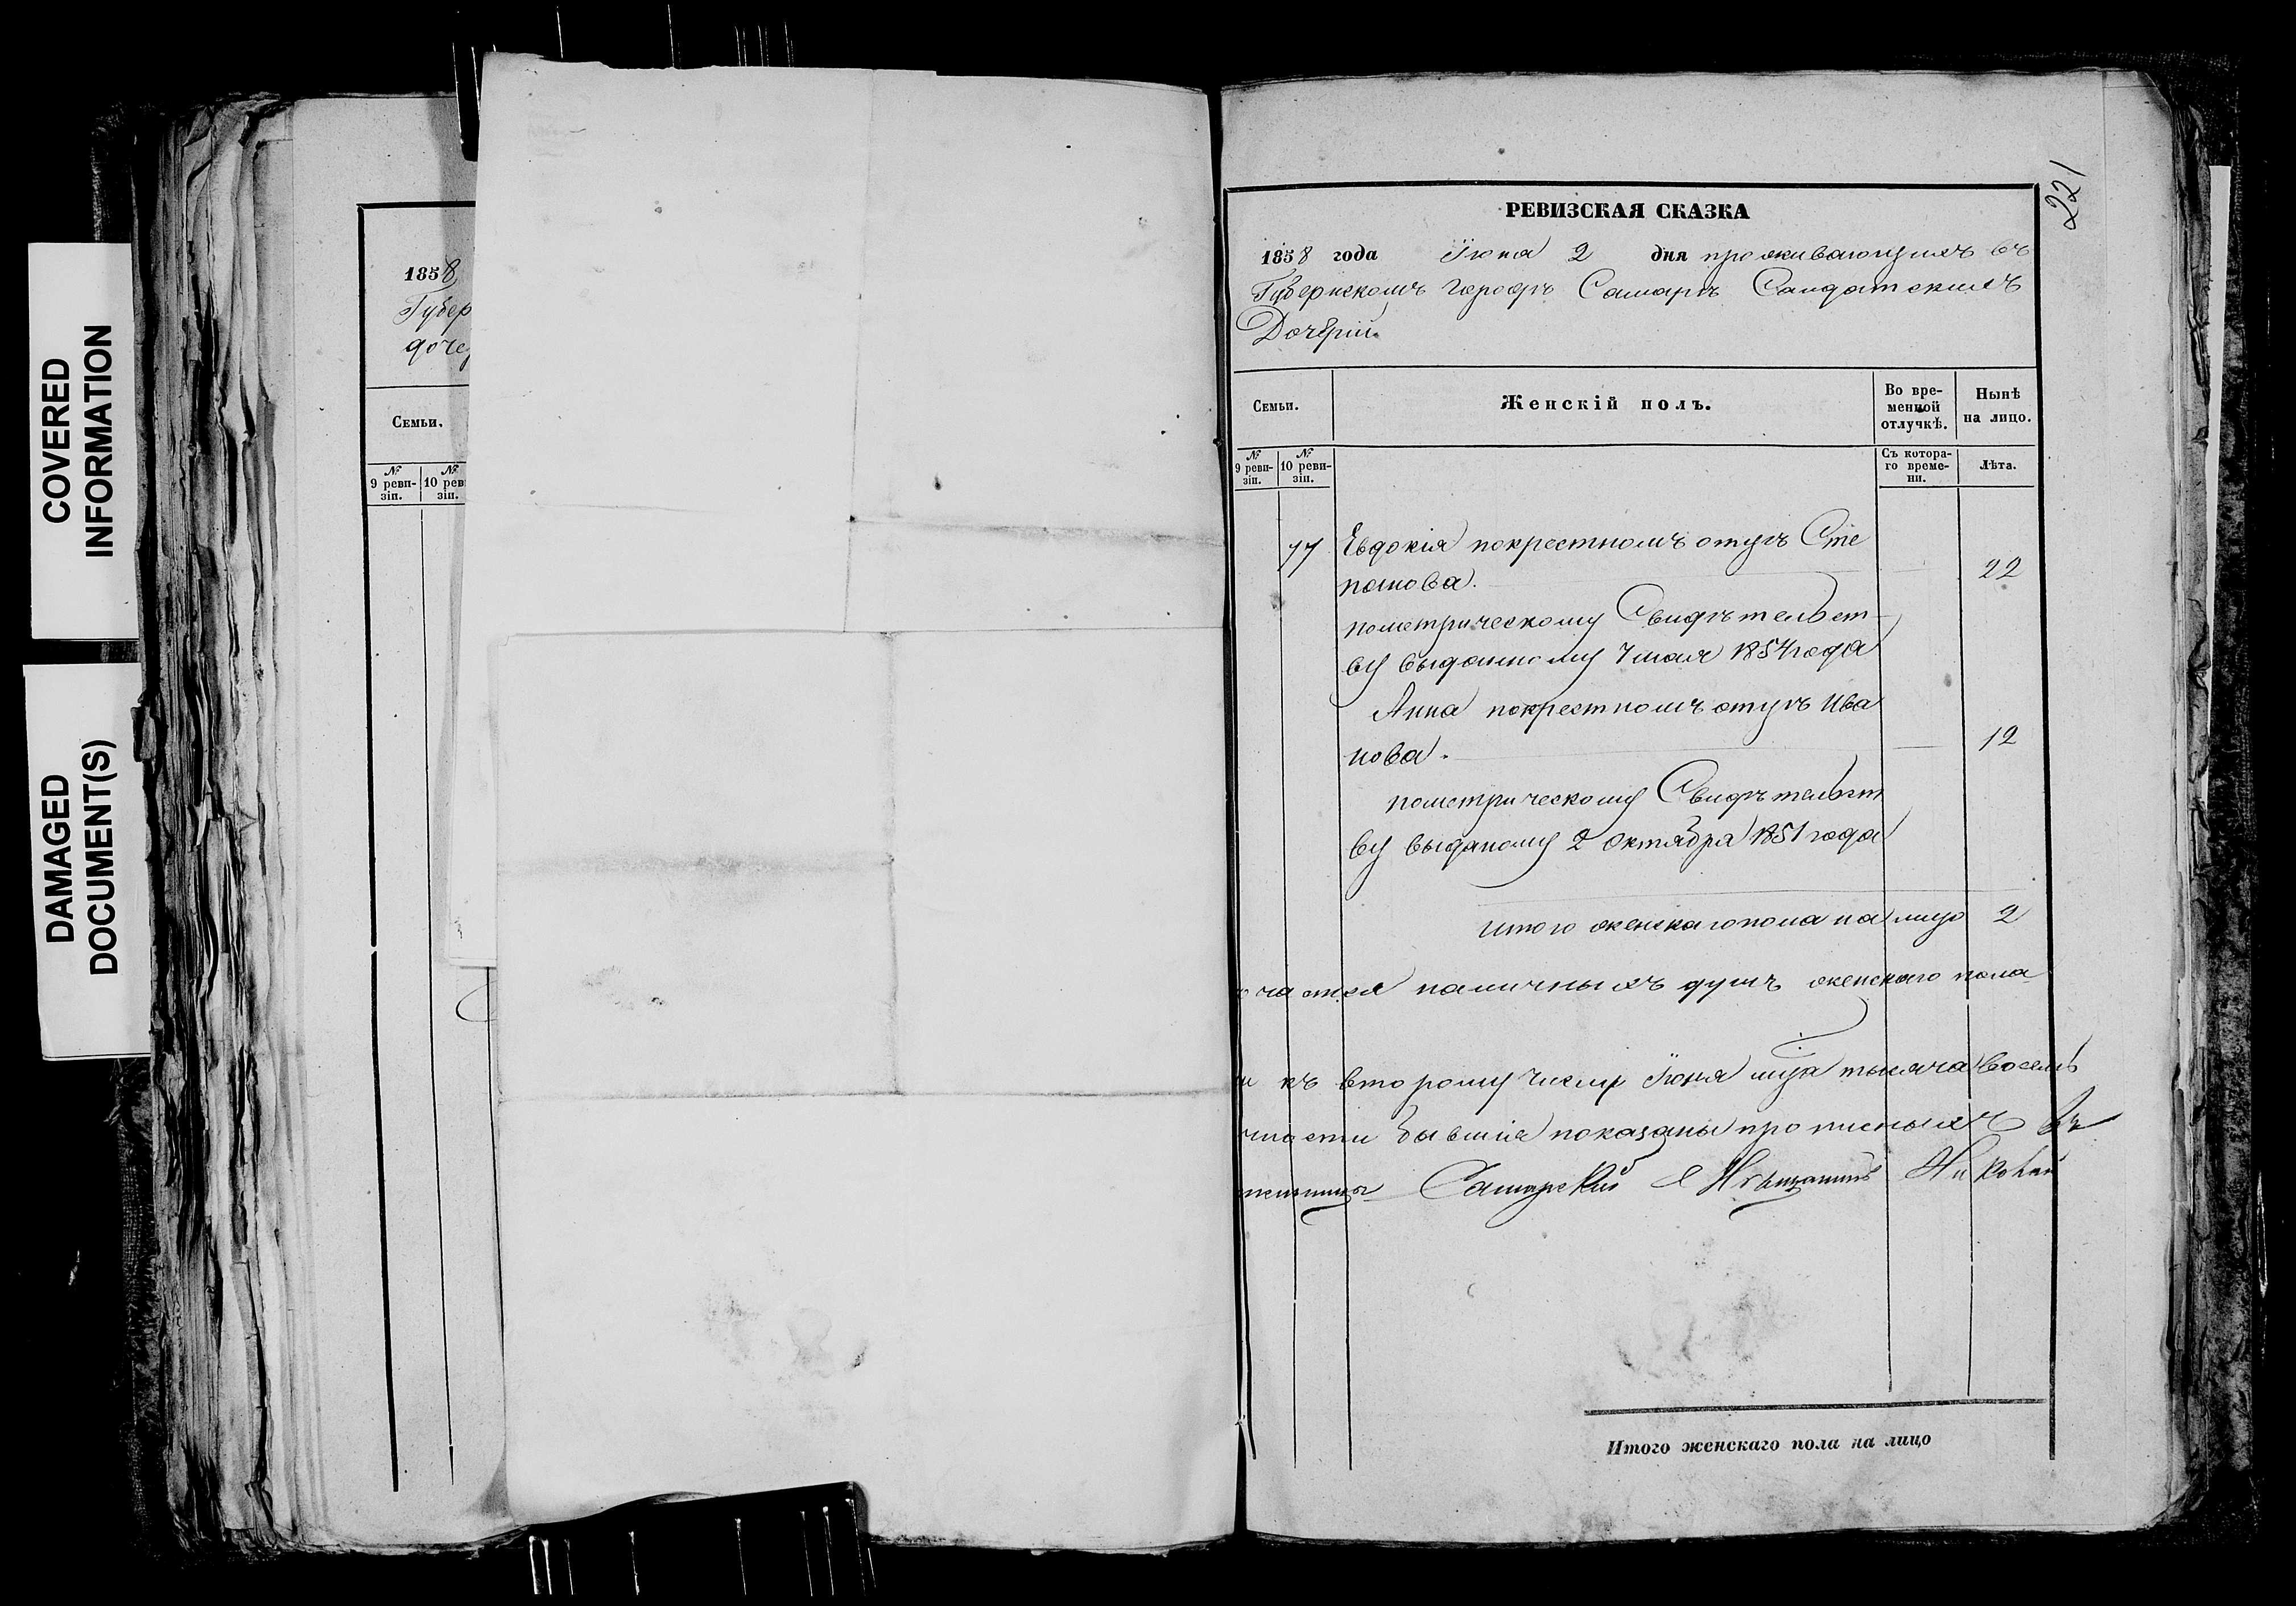 COVERED
INFORMATION
DAMAGED
DOCUMENT(S)
1858
Губер
доче
Семьи.
№ 9 реви-зіи.
№ 10 рев зіи.
221
РЕВИЗСКАЯ СКАЗКА
1858 года Іюня 2 дня проживающихъ въ
Губернскомъ городѣ Самарѣ Салдатскихъ
Дочерій.
Семьи.
Женскій полъ.
Во вре-
менной
отлучкѣ.
Нынѣ
на лицо.
№ 9 реви-зіи.
№ 10 реви-зіи.
Съ котора-
го време-
ни.
Лѣта.
77 Евдокія покрестномъ отцѣ Сте
панова. 22
пометрическому Свидѣтельст-
ву выданному 7 мая 1854 года
Анна покрестномъ отцѣ Ива
нова. 12
пометрическому Свидѣтельст
ву выданому 2 Октября 1851 года
итого женскаго пола на лицо 2
наличныхъ душъ женскаго пола
къ второму числу Іюня мца тысяча восемь
бывшіе показаны прописныхъ
Самарскій Мѣщанинъ Николай
Итого женскаго пола на лицо